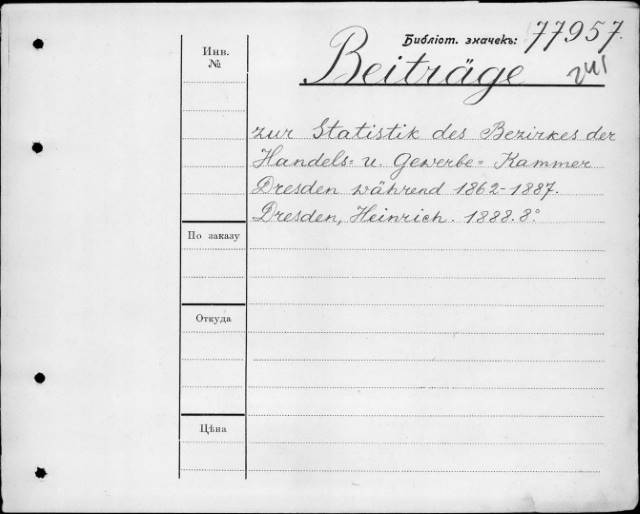 Библіот. значекъ: 77957.
Инв.
№
Beiträge
241
zur Statistik des Bezirkes der
Handels= u. Gewerbe= Kammer
Dresden während 1862-1887.
Dresden, Heinrich. 1888. 8°
По заказу
Откуда
Цѣна